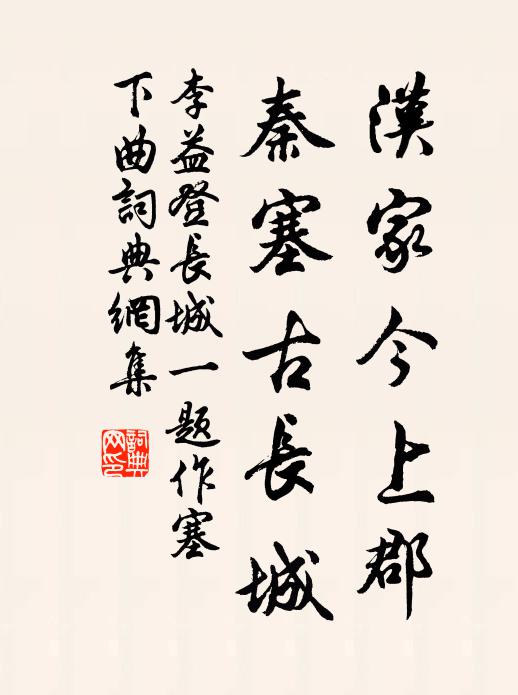 漢家今上郡
秦塞古長城
李益登長城一题作塞
下曲詞典網集
詞典
网印